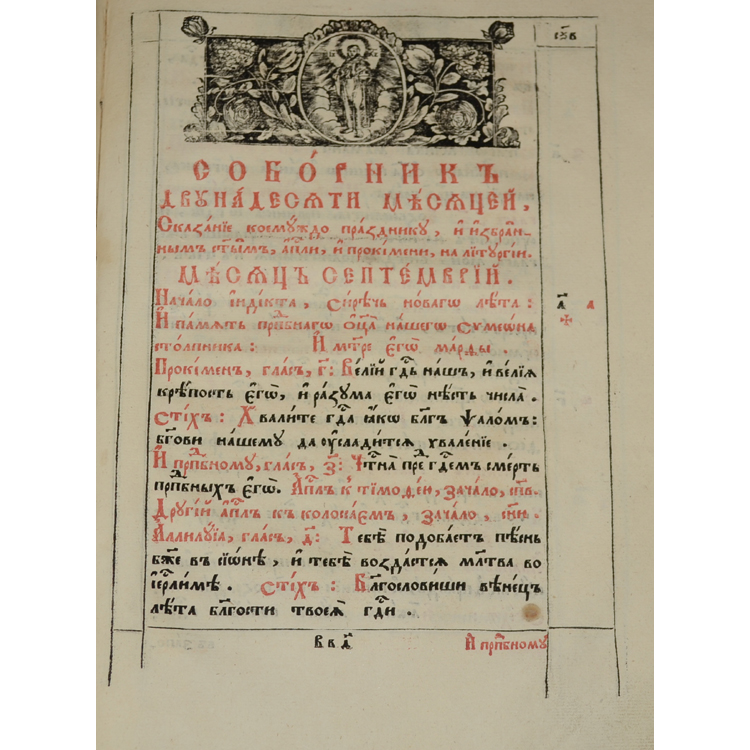 сѯ҃в
СОБО́РНИКЪ
ДВꙊНА́ДЕСѦТИ МѢ́СѦЦЕЙ,
Сказа́нїе коемꙋ́ждо пра́здникꙋ, и҆ и҆збра̑н-
нымъ ст҃ы̑мъ, а҆пⷭ҇ли, и҆ прокі́мени, на лїтꙋргі́и.
МѢ́СѦЦЪ СЕПТЕ́МВРІЙ.
Нача́ло и҆ндї́кта, си́рѣчь но́вагѡ лѣ́та :
И҆ па́мѧть прпⷣбнагѡ ѻ҆ц҃а̀ на́шегѡ сѷмеѡ́на
сто́лпника : И҆ мт҃ре є҆гѡ̀ ма́рѳы .
а҃ а
Прокі́менъ, гла́съ, г҃ : Ве́лїй гдⷭ҇ь на́шъ, и҆ ве́лїѧ
крѣ́пость є҆гѡ̀, и҆ ра́зꙋма є҆гѡ̀ нѣ́сть числа̀ .
Сті́хъ : Хвали́те гдⷭ҇а ꙗ҆́кѡ бл҃гъ ѱало́мъ :
бг҃ови на́шемꙋ да ᲂу҆слади́тсѧ хвале́нїе .
И҆ прпⷣбномꙋ, гла́съ, з҃ : Чⷭ҇тна̀ пре́дъ гдⷭ҇емъ сме́рть
прпⷣбныхъ є҆гѡ̀. А҆пⷭ҇лъ к̾ тїмоѳе́и, зача́ло, сп҃в.
Дрꙋгі́й а҆пⷭ҇лъ къ колоса́емъ, зача́ло, сн҃и.
Аллилꙋ́їа, гла́съ, д҃ : Тебѣ̀ подоба́етъ пѣ́снь
бж҃е въ сїѡ́нѣ, и҆ тебѣ̀ возда́стсѧ мл҃тва во
і҆ерⷭ҇ли́мѣ . Сті́хъ : Бл҃гослови́ши вѣне́цъ
лѣ́та бл҃гости твоеѧ̀ гдⷭ҇и .
В в д҃
И҆ прпⷣбномꙋ